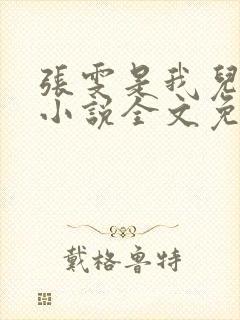 張雯是我兒
小說全文免
戴格魯特